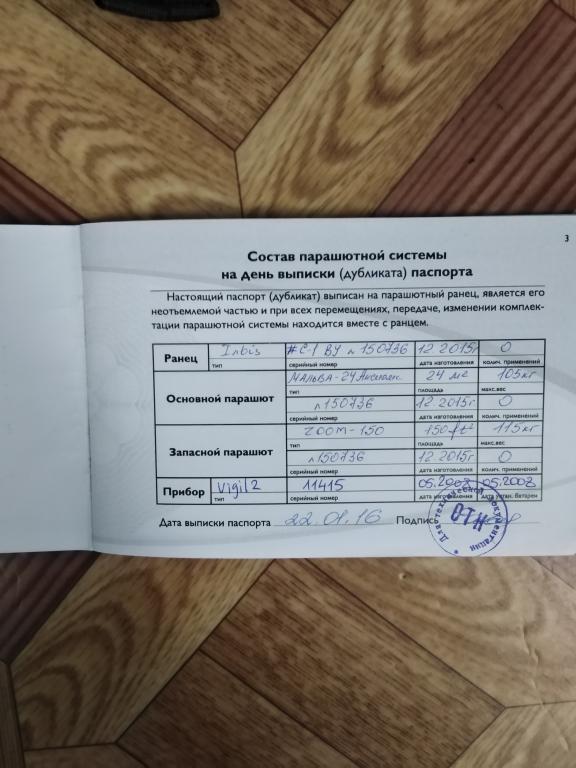 3
Состав парашютной системы
на день выписки (дубликата) паспорта
Настоящий паспорт (дубликат) выписан на парашютный ранец, является его
неотъемлемой частью и при всех перемещениях, передаче, изменении комплек-
тации парашютной системы находится вместе с ранцем.
Ранец Irbis #С-1 ВУ л 150736 12.2015г 0
тип серийный номер дата изготовления колич. применений
Мальва-24 24 м2 105кг
тип площадь макс.вес
Основной парашют
л150736 12.2015г 0
серийный номер дата изготовления колич. применений
ZOOM-150 150 ft² 115кг
тип площадь макс.вес
Запасной парашют
л150736 12.2015г 0
серийный номер дата изготовления колич. применений
Прибор Vigil2 11415 05.2008 05.2008
тип серийный номер дата изготовления дата устан. батареи
Дата выписки паспорта 22.01.16 Подпись
Для технической документации
ОТК